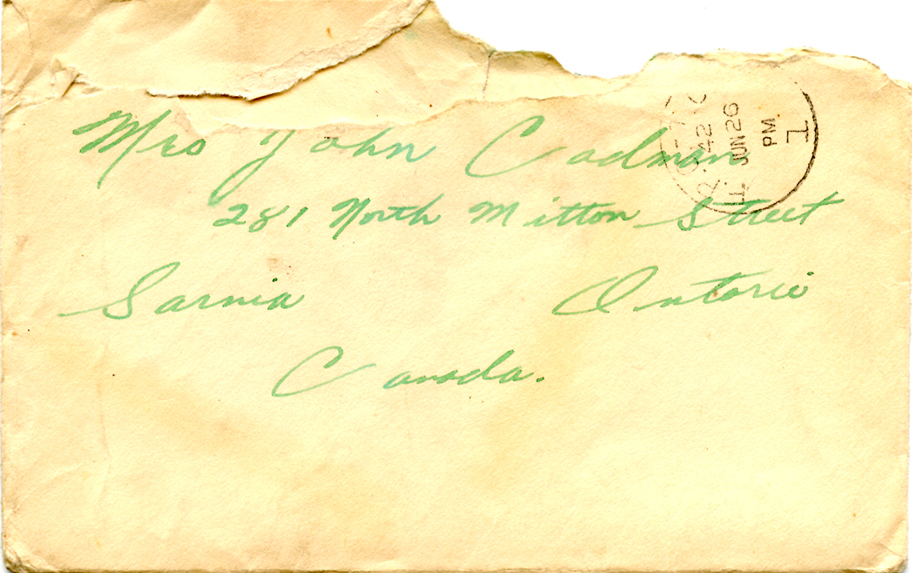 Mrs John Cadman
281 North Mitton Street
Sarnia Ontario
Canada.
JUN 26
PM
1